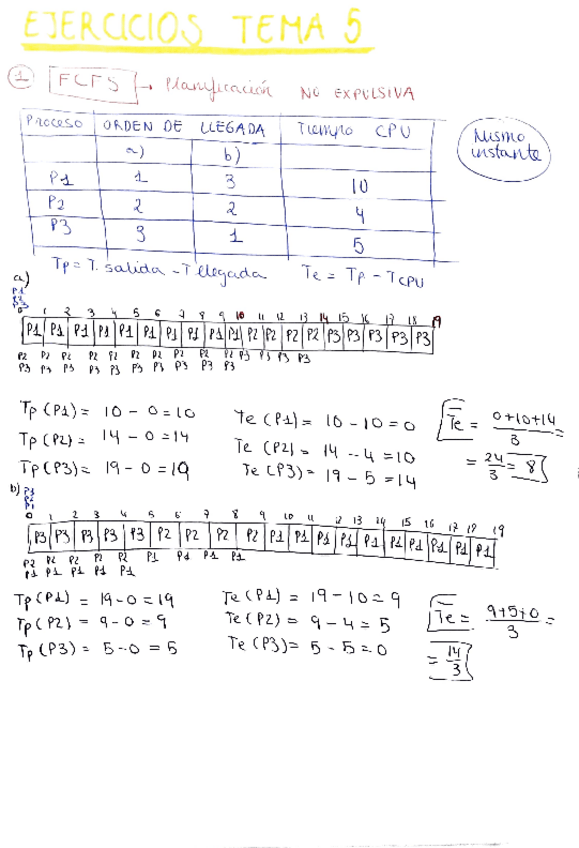 EJERCICIOS TEMA 5
1 FCFS → Planificación NO EXPULSIVA
Proceso ORDEN DE LLEGADA Tiempo CPU
a) b)
P1 1 3 10
P2 2 2 4
P3 3 1 5
Mismo instante
Tp = T. salida - T llegada Te = Tp - TCPU
a)
P1
P2
P3
0 1 2 3 4 5 6 7 8 9 10 11 12 13 14 15 16 17 18 19
P1 P1 P1 P1 P1 P1 P1 P1 P1 P1 P2 P2 P2 P2 P3 P3 P3 P3 P3
P2 P2 P2 P2 P2 P2 P2 P2 P2 P2 P3 P3 P3 P3
P3 P3 P3 P3 P3 P3 P3 P3 P3 P3
Tp (P1) = 10 - 0 = 10 Te (P1) = 10 - 10 = 0 Te = 0+10+14/3 =
Tp (P2) = 14 - 0 = 14 Te (P2) = 14 - 4 = 10 = 24/3 = 8
Tp (P3) = 19 - 0 = 19 Te (P3) = 19 - 5 = 14
b)
P3
P2
P1
0 1 2 3 4 5 6 7 8 9 10 11 12 13 14 15 16 17 18 19
P3 P3 P3 P3 P3 P2 P2 P2 P2 P1 P1 P1 P1 P1 P1 P1 P1 P1 P1
P2 P2 P2 P2 P2 P1 P1 P1 P1
P1 P1 P1 P1 P1
Tp (P1) = 19 - 0 = 19 Te (P1) = 19 - 10 = 9 Te = 9+5+0/3 =
Tp (P2) = 9 - 0 = 9 Te (P2) = 9 - 4 = 5 = 14/3
Tp (P3) = 5 - 0 = 5 Te (P3) = 5 - 5 = 0